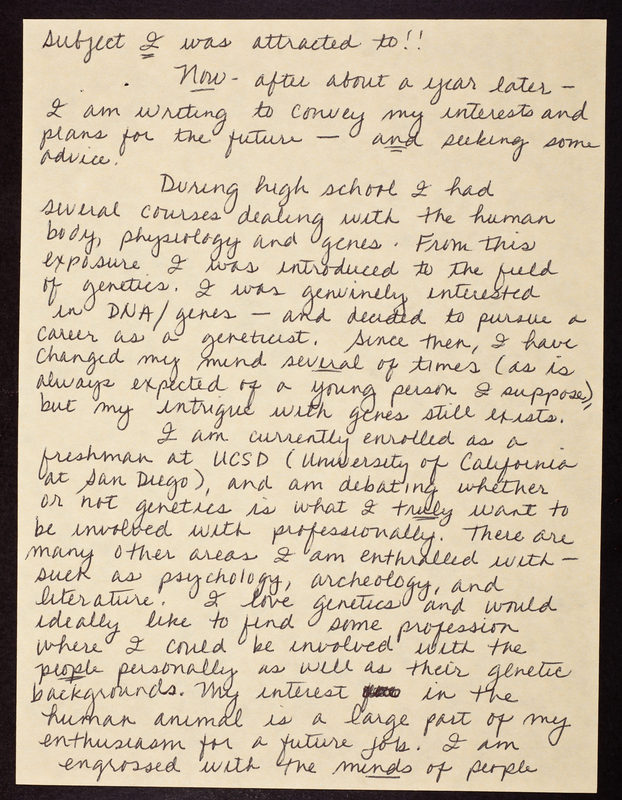 subject I was attracted to!!
Now - after about a year later -
I am writing to convey my interests and
plans for the future — and seeking some
advice.
During high school I had
several courses dealing with the human
body, physiology and genes. From this
exposure I was introduced to the field
of genetics. I was genuinely interested
in DNA/genes — and decided to pursue a
career as a geneticist. Since then, I have
changed my mind several of times (as is
always expected of a young person I suppose),
but my intrigue with genes still exists.
I am currently enrolled as a
freshman at UCSD (University of California
at San Diego), and am debating whether
or not genetics is what I truly want to
be involved with professionally. There are
many other areas I am enthralled with -
such as psychology, archeology, and
literature. I love genetics and would
ideally like to find some profession
where I could be involved with the
people personally as well as their genetic
backgrounds. My interest in the
human animal is a large part of my
enthusiasm for a future job. I am
engrossed with the minds of people